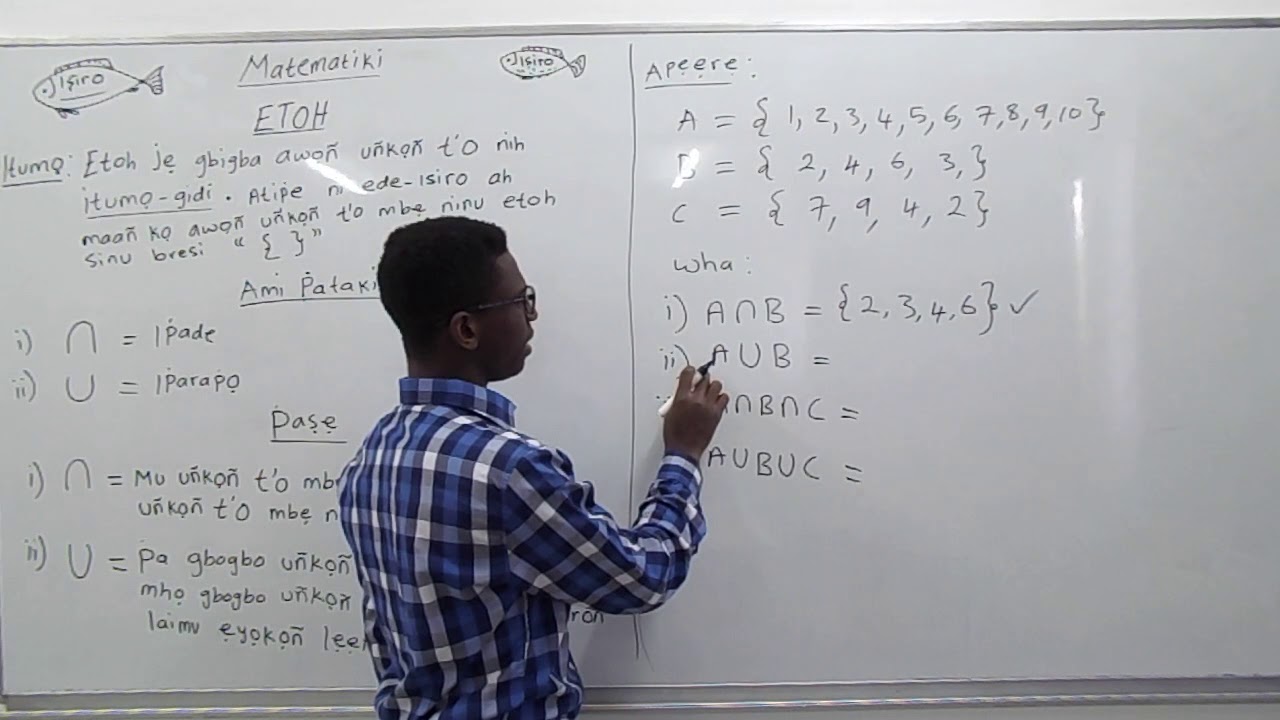 Işiro
Matematiki
Işiro
ETOH
Itumọ: Etoh jẹ gbigba awoñ uñkọñ t'o nih
itumọ-gidi. Atipe ni ede-Isiro ah
maañ kọ awọñ uñkọñ t'o mbẹ ninu etoh
sinu bresi “{ }”
Ami Ṗataki
i) ∩ = Iṗade
ii) ∪ = Iṗaraṗọ
Ṗaṣẹ
i) ∩ = Mu uñkọñ t'o
uñkọñ t'o mbẹ
ii) ∪ = Ṗa gbogbo uñkọñ
mhọ gbogbo uñkọñ
laimu ẹyọkọñ
Apẹẹrẹ:
A = { 1, 2, 3, 4, 5, 6, 7, 8, 9, 10}
B = { 2, 4, 6, 3, }
C = { 7, 9, 4, 2}
Wha:
i) A∩B = {2, 3, 4, 6} ✓
ii) A∪B =
∩B∩C =
A∪B∪C =